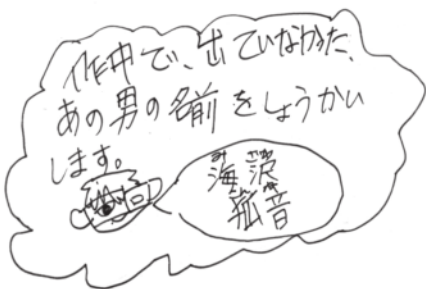 作中で、出ていなかった、
あの男の名前をしょうかい
します。
海沢
狐音